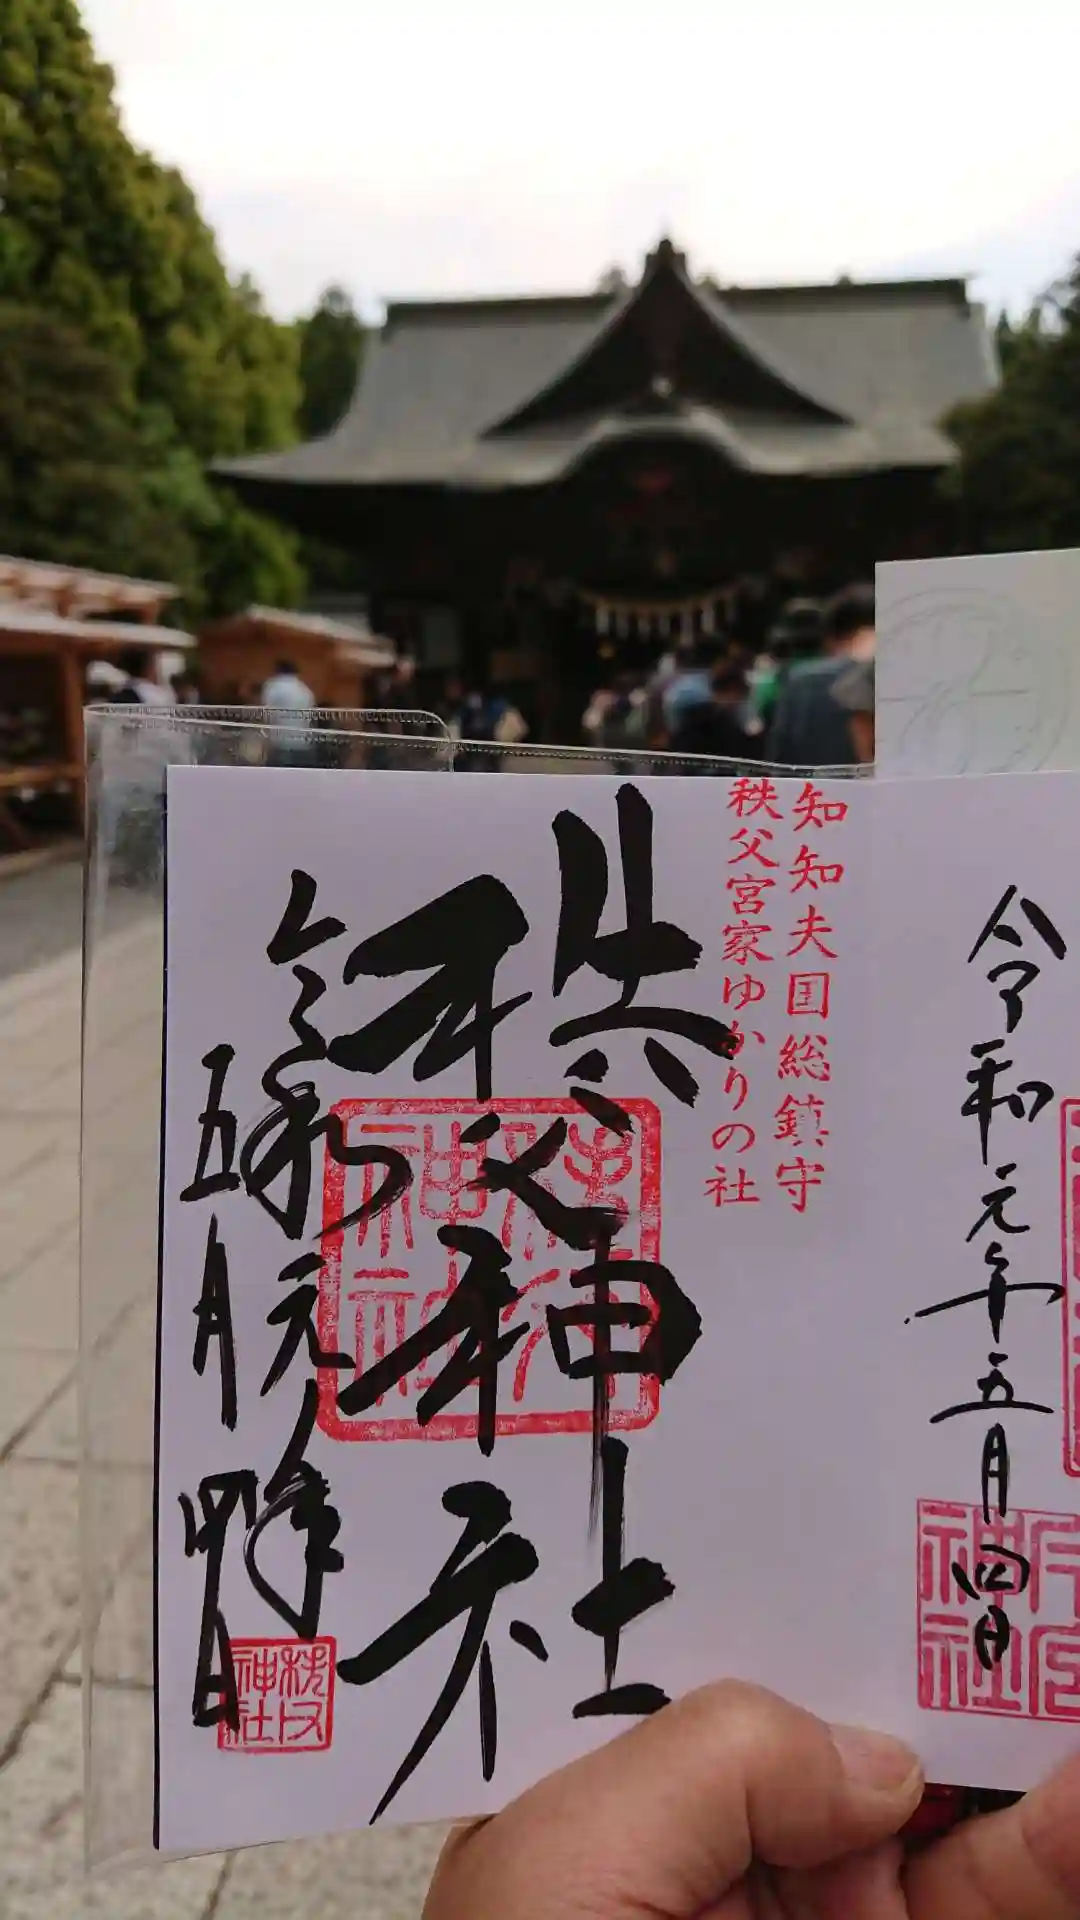 令和元年五月四日
神社
知知夫国総鎮守
秩父宮家ゆかりの社
秩父神社
秩父神社
令和元年
五月四日
秩父神社